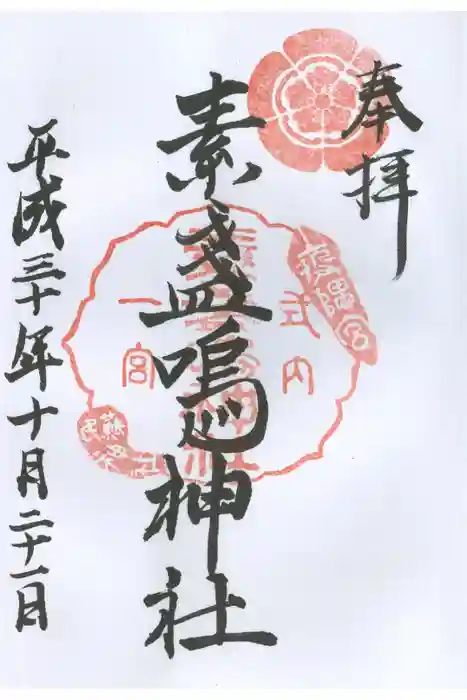 奉拝
素盞嗚神社
平成三十年十月二十一日
式内
一宮
疫隅宮
蘇民